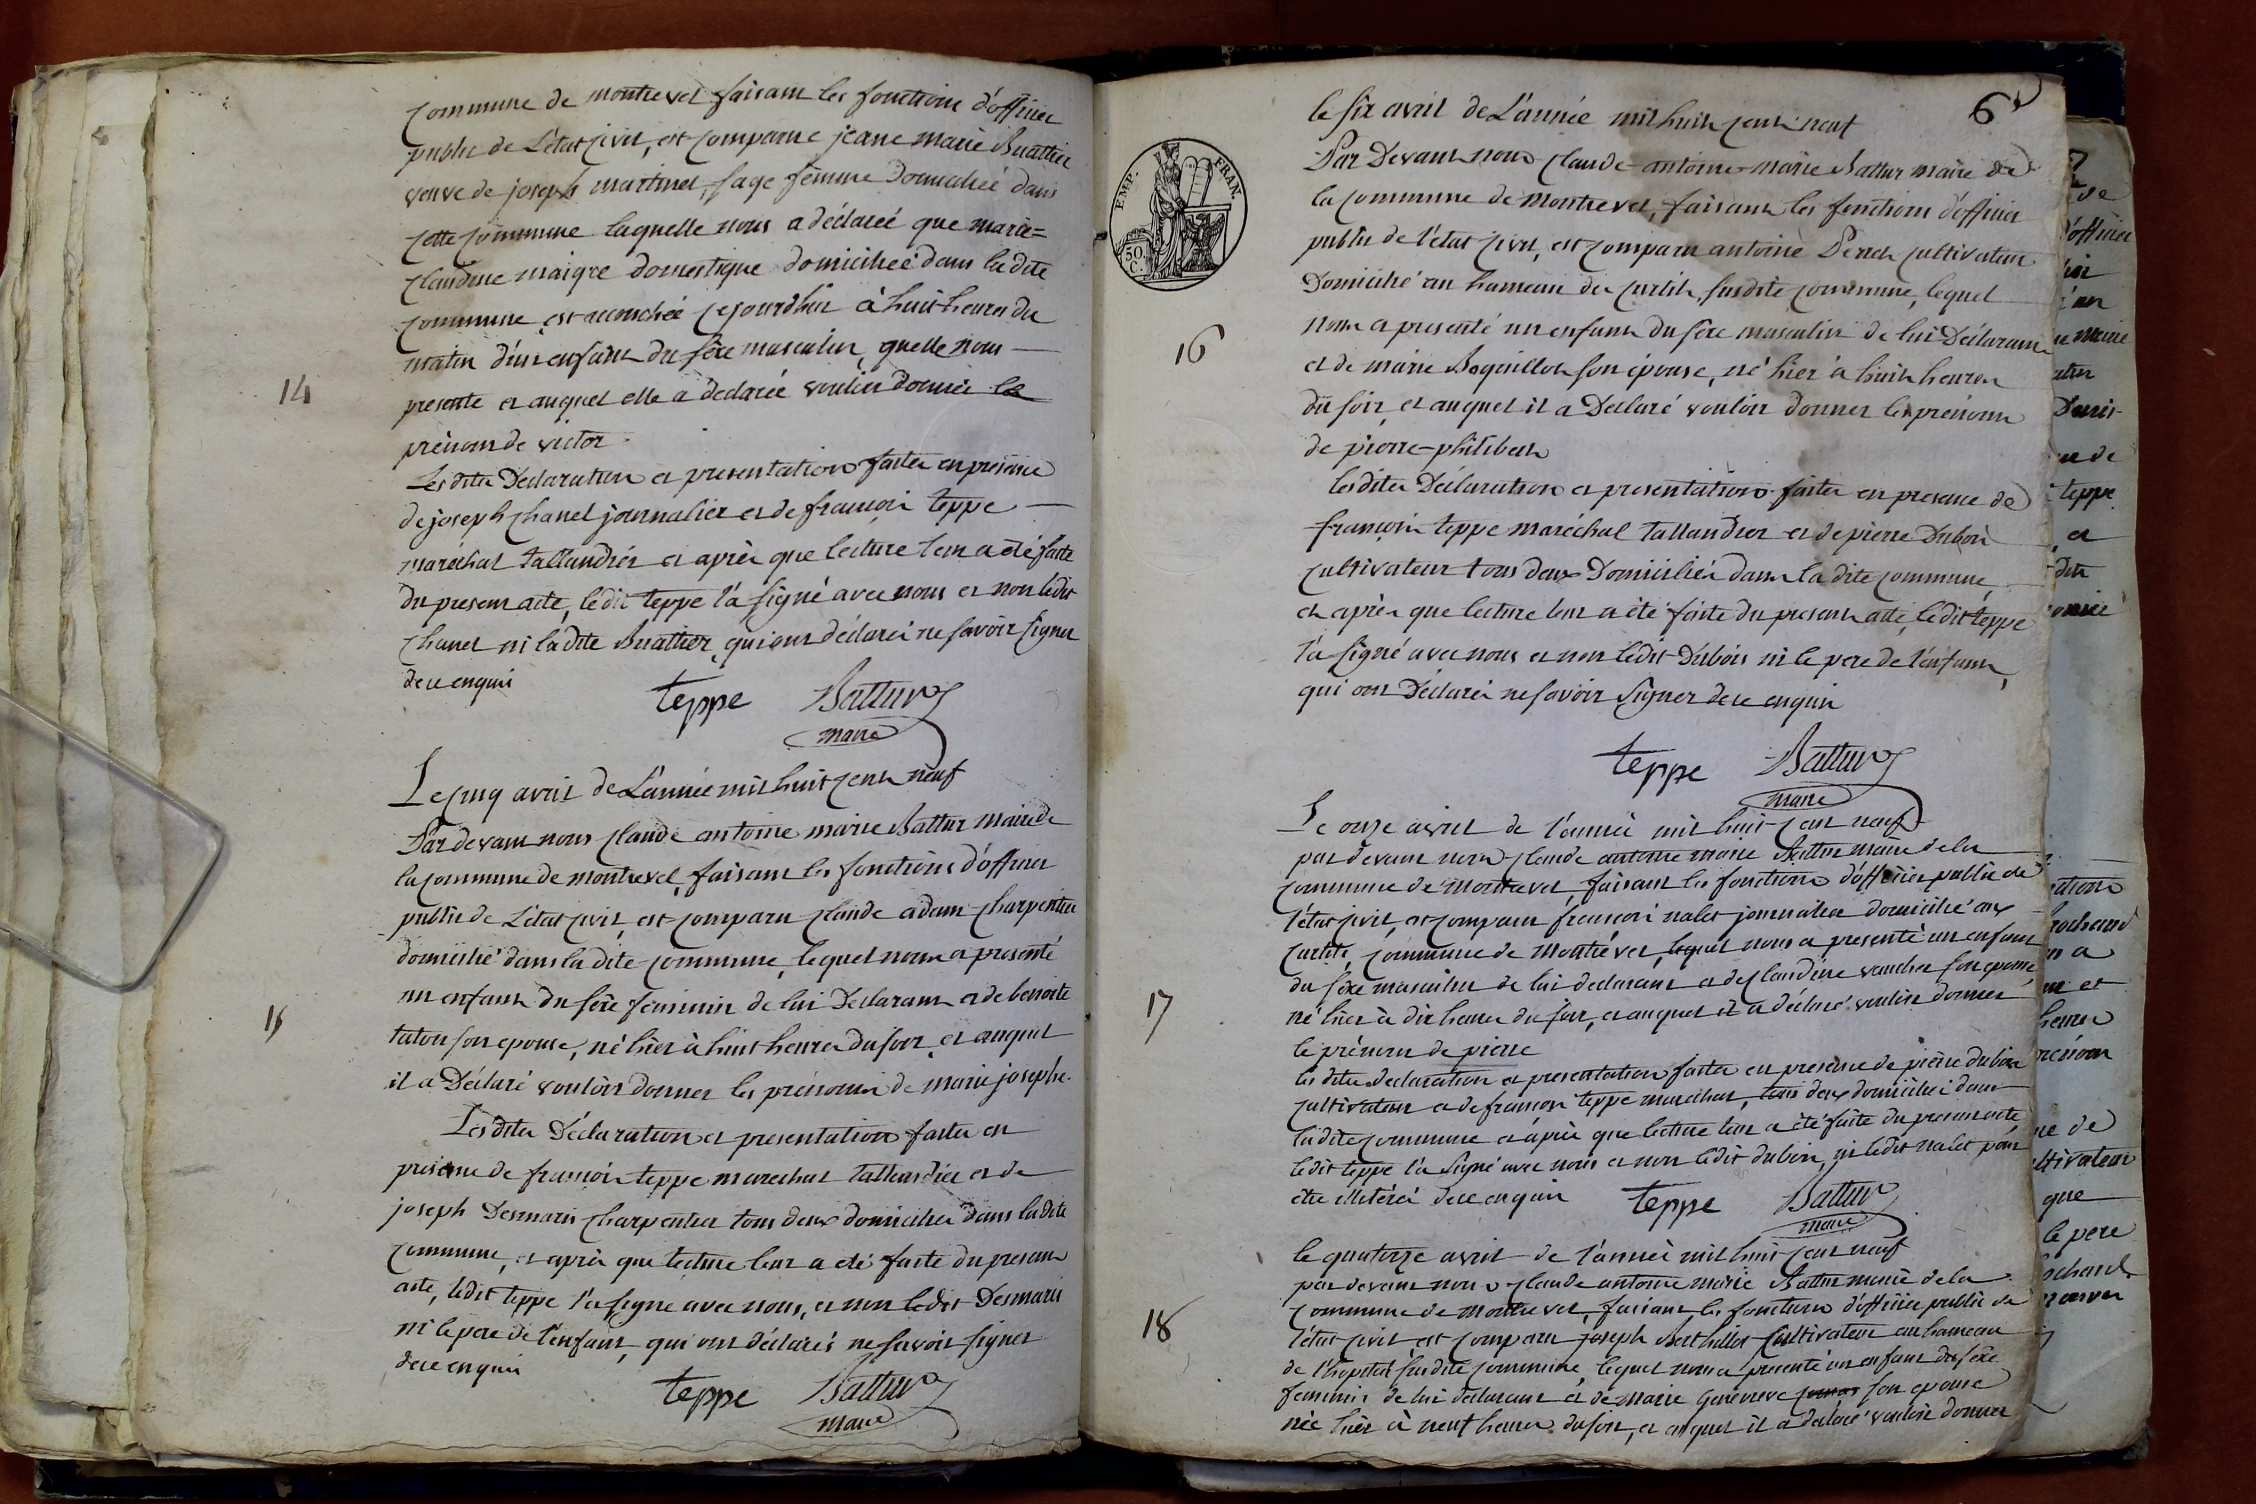 commune de montrevel faisant les fonctions d'officier
public de L'état civil, est comparue jeane marie Buattier
veuve de joseph martinet, sage femme domiciliée dans
cette commune laquelle nous a déclareé que marie=
claudine maigre domestique domiciliée dans la dite
commune est accouchée cejourd'hui à huit heures du
matin d'un enfant du sexe masculin, quelle nous
14
presente et auquel elle a déclarée vouloir donner le
prénom de victor.
Les dites Déclaration et presentation faites en presence
de joseph chanel journalier et de françois teppe
maréchal tallandier et après que lecture leur a été faite
du present acte, ledit teppe l'a signé avec nous et non ledit
chanel ni ladite Buattier, qui ont déclaré ne savoir signer
de ce enquis
teppe Battur
maire
Le cinq avril de L'année mil huit cent neuf
Par devant nous claude antoine marie Battur maire de
la commune de montrevel, faisant les fonctions d'officier
public de L'état civil, est comparu claude adam charpentier
domicilié dans la dite commune, lequel nous a presenté
un enfant du sexe féminin de lui Déclarant et de benoite
15
son epouse, né hier à huit heures du soir, et auquel
il a Déclaré vouloir donner les prénoms de marie josephe.
Les dites Déclaration et presentation faites en
presence de françois teppe marechal tallandier et de
joseph Desmaris charpentier tous deux domiciliés dans la dite
commune, et après que lecture leur a été faite du present
acte, ledit teppe l'a signé avec nous, et non ledit Desmaris
ni le pere de l'enfant, qui ont déclarés ne savoir signer
de ce enquis
teppe Battur
maire
6
le six avril de L'année mil huit cent neuf
Par Devant nous claude-antoine-marie Battur maire de
la commune de montrevel, faisant les fonctions d'officier
EMP. FRAN.
50 C.
public de l'état civil, est comparu antoine cultivateur
Domicilié au hameau des curtils, susdite commune, lequel
nous a presenté un enfant du sexe masculin de lui Déclarant
16
et de marie Boquillot son épouse, né hier à huit heures
du soir, et auquel il a Déclaré vouloir donner les prénoms
de pierre-philibert
les dites Déclaration et presentation faites en presence de
françois teppe maréchal tallandier et de pierre Dubois
cultivateur tous deux Domiciliés dans la dite commune,
et après que lecture leur a été faite du present acte, ledit teppe
l'a signé avec nous et non ledit Dubois ni le pere de l'enfant,
qui ont Déclarés ne savoir signer de ce enquis
teppe Battur
maire
Le onze avril de l'année mil huit cent neuf
par devant nous claude antoine marie Battur maire de la
commune de montrevel, faisant les fonctions d'officier public de
l'état civil, est comparu françois nalet journalier domicilié aux
curtils, commune de montrével, lequel nous a presenté un enfant
du sexe masculin de lui declarant et de claudine vaucher son epouse
17
né hier à dix heures du soir, et auquel il a déclaré vouloir donner
le prénom de pierre
les dites declaration et presentation faites en presence de pierre dubois
cultivateur et de françois teppe marechal, tous deux domiciliés dans
ladite commune et après que lecture leur a été faite du present acte
ledit teppe l'a signé avec nous et non ledit dubois, ni ledit nalet pour
être illetérés de ce enquis
teppe Battur
maire
le quatorze avril de l'année mil huit cent neuf
par devant nous claude antoine marie Battur maire de la
18
commune de montrevel, faisant les fonctions d'officier public de
l'état civil est comparu joseph Berthillot cultivateur au hameau
de l'hopital susdite commune, lequel nous a presenté un enfant du sexe
feminin de lui declarant et de marie genevieve son epouse
née hier à neuf heures du soir, et auquel il a déclaré vouloir donner